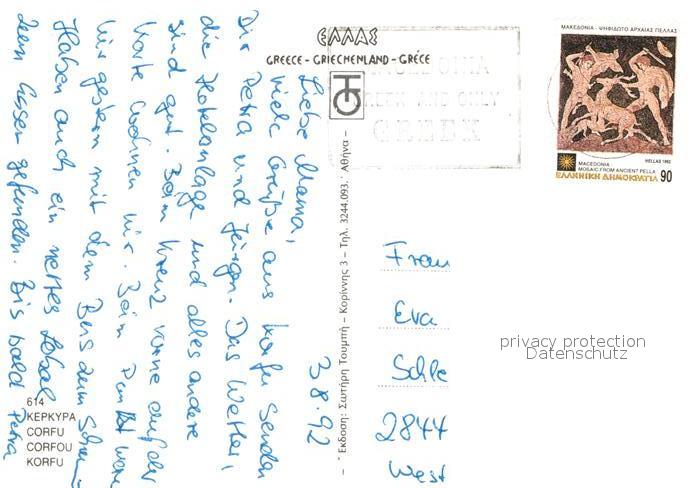 ΕΛΛΑΣ
GREECE - GRIECHENLAND - GRÈCE
MACEDONIA
GREEK AND ONLY
GREEK
ΜΑΚΕΔΟΝΙΑ - ΨΗΦΙΔΩΤΟ ΑΡΧΑΙΑΣ ΠΕΛΛΑΣ
MACEDONIA
MOSAIC FROM ANCIENT PELLA
HELLAS 1992
ΕΛΛΗΝΙΚΗ ΔΗΜΟΚΡΑΤΙΑ 90
3.8.92
Liebe Mama,
viele Grüße aus Korfu senden
Dir Petra und Jürgen. Das Wetter,
die Hotelanlage und alles andere
sind gut. Beim Kreuz vorne auf der
Karte wohnen wir. Beim Punkt waren
wir gestern mit dem Bus zum
Haben auch ein nettes Lokal
zum Essen gefunden. Bis bald Petra
Έκδοση: Σωτήρη Τουμπή - Κορίννης 3 - Τηλ. 3244.093. Αθήνα -
Frau
Eva
Schle
2844
West
privacy protection
Datenschutz
614
ΚΕΡΚΥΡΑ
CORFU
CORFOU
KORFU